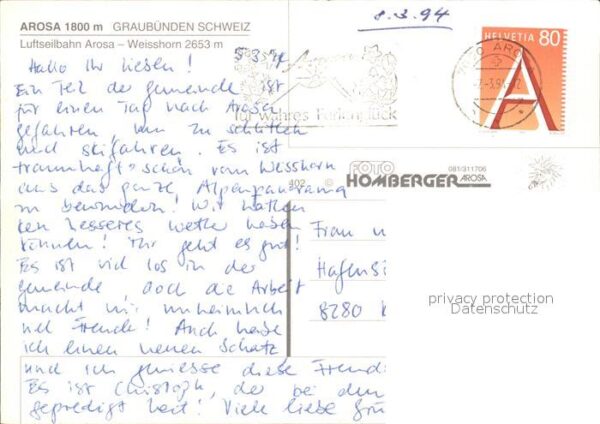 8.3.94
AROSA 1800 m GRAUBÜNDEN SCHWEIZ
Luftseilbahn Arosa – Weisshorn 2653 m
HELVETIA 80
A
Arosa
für wahres Ferienglück
5.3.94
Hallo Ihr Lieben!
Ein Teil der Gemeinde ist
für einen Tag nach Arosa
gefahren, um zu schlitteln
und skifahren. Es ist
traumhaft schön vom Weisshorn
aus das ganze Alpenpanorama
zu bewundern! Wir hätten
kein besseres Wetter haben
können! Mir geht es gut!
Es ist viel los in der
Gemeinde doch die Arbeit
macht mir unheimlich
viel Freude! Auch habe
ich einen neuen Schatz
und ich geniesse diese Freund
Es ist Christoph, der bei dem
gepredigt hat! Viele liebe Grü
FOTO
HOMBERGER AROSA
081/311706
402 ©
Frau
Hafenst
8280 K
privacy protection
Datenschutz